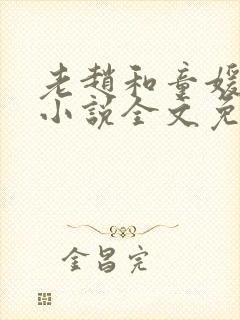 老趙和童媛
小說全文免
金昌完